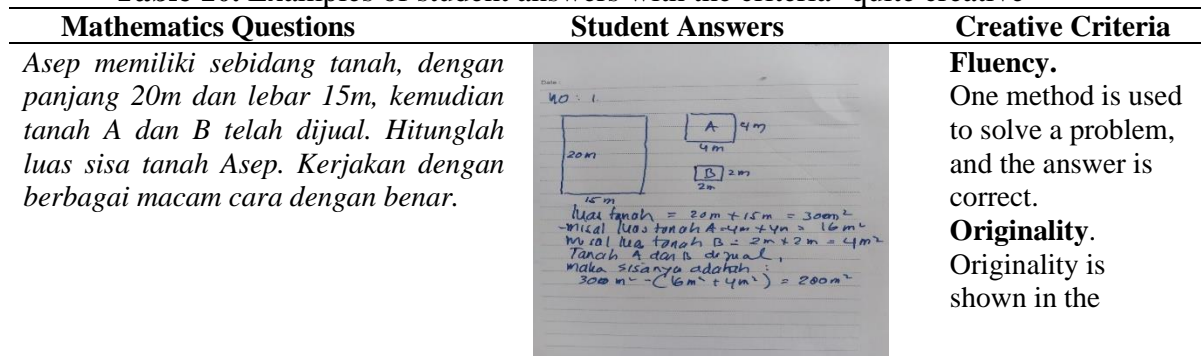 Mathematics Questions Student Answers Creative Criteria
Asep memiliki sebidang tanah, dengan
panjang 20m dan lebar 15m, kemudian
tanah A dan B telah dijual. Hitunglah
luas sisa tanah Asep. Kerjakan dengan
berbagai macam cara dengan benar.
Date:
NO : 1
A 4m
20m
4m
B 2m
2m
15 m
luas tanah = 20m + 15m = 300m²
-misal luas tanah A = 4m + 4m = 16m²
misal luas tanah B = 2m + 2m = 4m²
Tanah A dan B dijual,
maka sisanya adalah :
300 m² - (16m² + 4m²) = 280m²
Fluency.
One method is used
to solve a problem,
and the answer is
correct.
Originality.
Originality is
shown in the